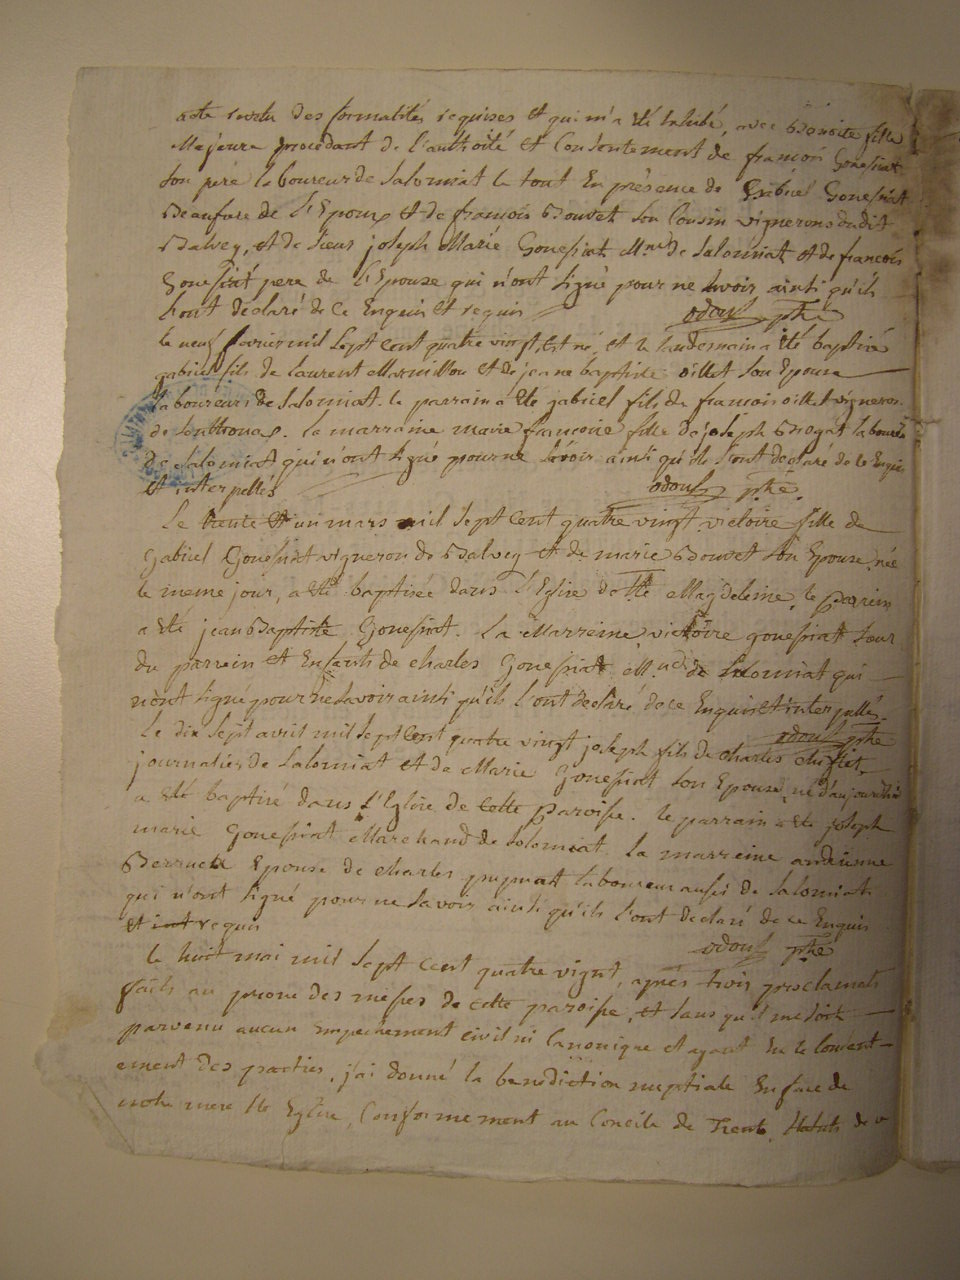 acte revetu des formalités requises et qui m'a été exhibé, avec Benoite fille
Majeure procedant de l'authorité et Consentement de francois Gonesiat
son pere laboureur de Salorniat le tout En présence de Gabriel Gonesiat
Beaufrere de l'Epoux et de francois Bouvet son Cousin vignerons dudit
Balvey, et de sieur joseph Marie Gonesiat M.nd de Salorniat et de francois
Gonesiat pere de l'Epouse qui n'ont signé pour ne savoir ainsi qu'ils
l'ont declaré de ce Enquis et requis odoux ptre
le neuf fevrier mil sept cent quatre vingt, est né, et le landemain a été baptisé
gabriel fils de laurent Marmillon et de jeanne baptiste oillet son Epouse
laboureurs de Salorniat. le parrain a été gabriel fils de francois oillet vigneron
de la marraine marie francoise fille de joseph Brogat laboureur
de Salorniat qui n'ont signé pour ne savoir ainsi qu'ils l'ont declaré de ce Enquis
et interpellés odoux ptre.
Le trente et un mars mil sept cent quatre vingt victoire fille de
Gabriel Gonesiat vigneron de Balvey et de marie Bouvet son Epouse, née
le meme jour, a été baptisée dans l'Eglise de Ste Magdeleine, le parrein
a été jean Baptiste Gonesiat. La Marreine victoire gonesiat soeur
du parrein et Enfants de charles Gonesiat M.nd de Salorniat qui
n'ont signé pour ne savoir ainsi qu'ils l'ont declaré de ce Enquis et interpellés.
odoux ptre
Le dix sept avril mil sept Cent quatre vingt joseph fils de charles chiflet
journalier de Salorniat et de Marie Gonesiat son Epouse, né d'aujourdhui
a été baptisé dans l'Eglise de Cette Paroisse. le parrain a été joseph
marie Gonesiat Marchand de Salorniat. la marreine andréanne
Berruet Epouse de charles laboureur aussi de Salorniat
qui n'ont signé pour ne savoir ainsi qu'ils l'ont declaré de ce Enquis
et requis odoux ptre
le huit mai mil sept cent quatre vignt, après trois proclamats
faits au prone des messes de cette paroisse, et sans qu'il me soit
parvenu aucun empechement civil ni Canonique et ayant Eu le consent-
ement des parties, j'ai donné la benediction nuptiale En face de
notre mere Ste Eglise, Conformement au Concile de Trente, statuts de